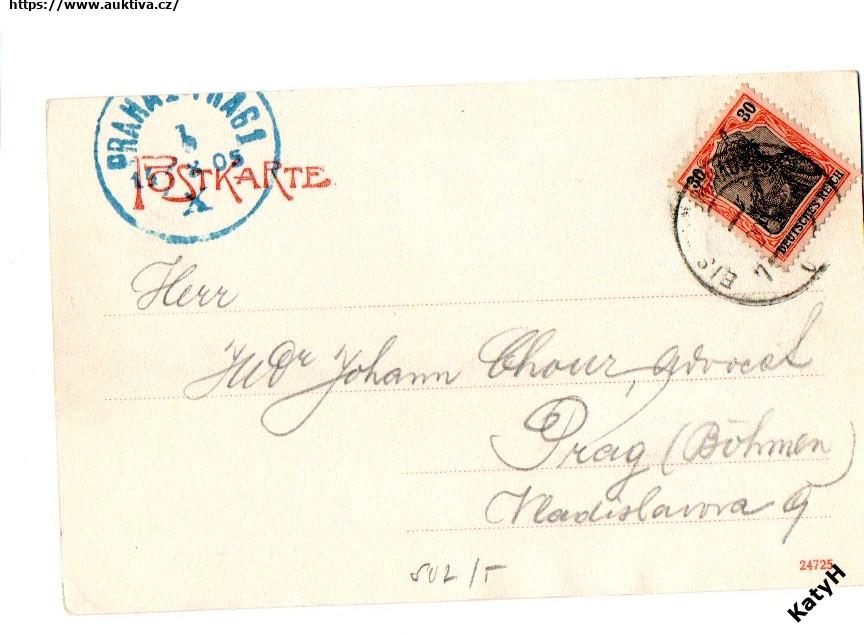 https://www.auktiva.cz/
PRAHA 1 PRAG 1
05
X
POSTKARTE
30
30
DEUTSCHES REICH
Herr
JUDr Johann Chour, advocat
Prag (Böhmen)
Vladislavova 9
502/5
24725
KatyH